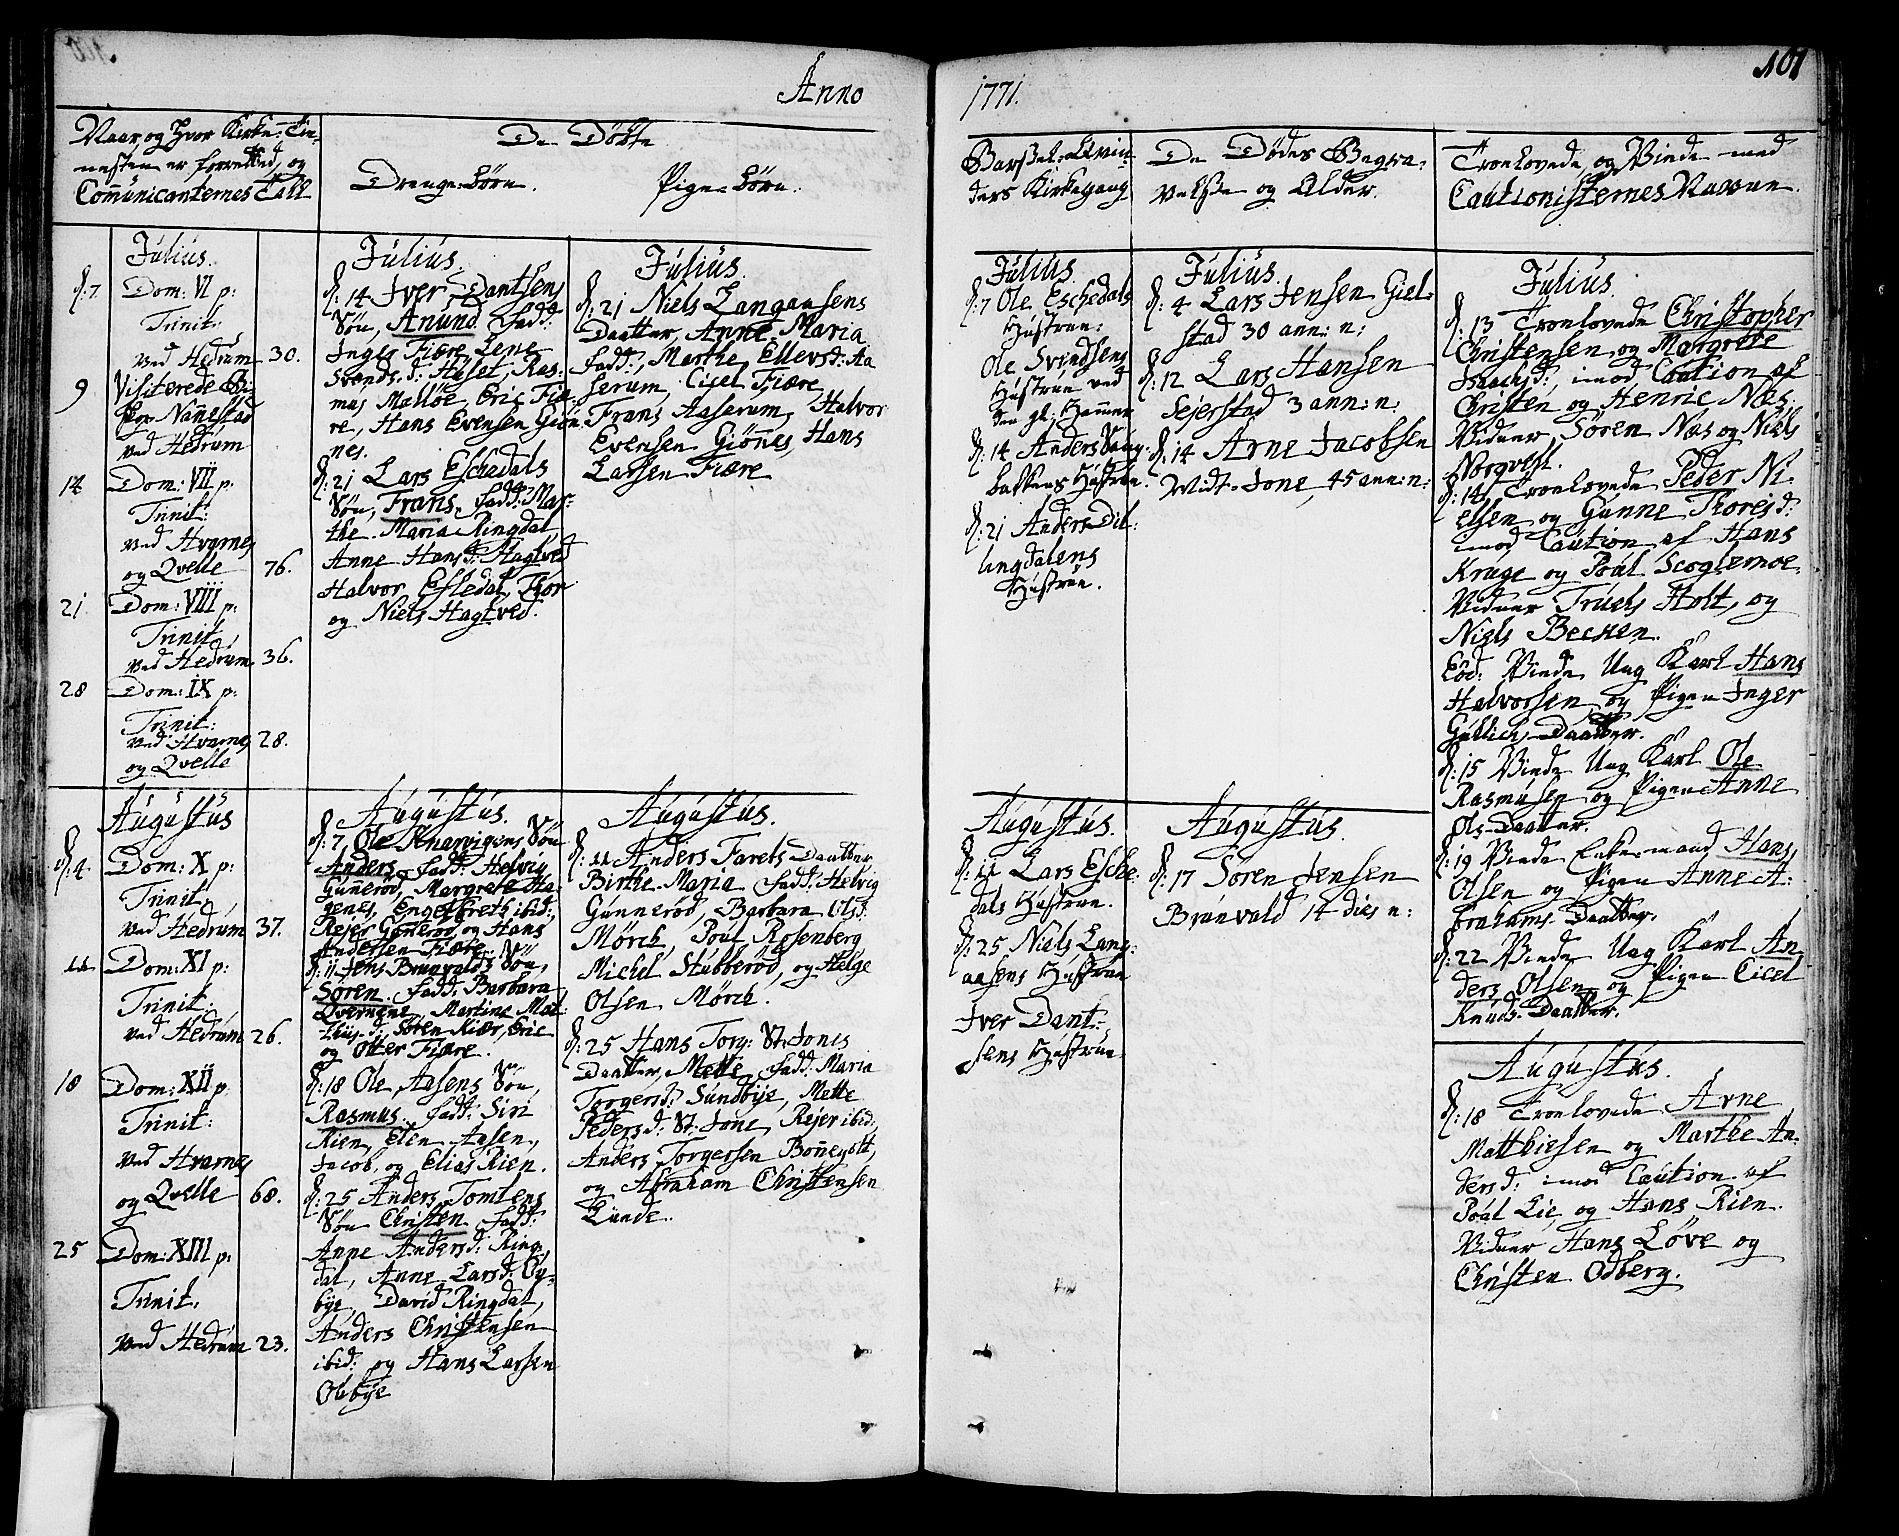 Anno
1771.
101
Naar og hvor Kirke-Tie-
nesten er forretted, og
Com̄unicanternes Tall
De Döbte
Drenge-börn.
Pige-börn.
Barsel-Qvin-
ders Kirkegang
De Dödes Begra-
velse og Alder.
Troelovede og Viede med
Cautionisternes Navne.
Julius.
d: 7 Dom: VI p:
Trinit:
ved Hedrum 30.
9 Visiterede Bi-
sp Nan̄estad
ved Hedrum
14 Dom: VII p:
Trinit:
ved Hvarnes
og Qvelle 76.
21 Dom: VIII p:
Trinit:
ved Hedrum 36.
28 Dom: IX p:
Trinit:
ved Hvarnes 28.
og Qvelle
Augustus
d: 4 Dom: X p:
Trinit:
ved Hedrum 37.
11 Dom: XI p:
Trinit:
ved Hedrum 26.
18 Dom: XII p:
Trinit:
ved Hvarnes
og Qvelle 68.
25 Dom: XIII p:
Trinit:
ved Hedrum 23.
Julius.
d: 14 Iver Dantsens
Sön, Anund. fadd:
Inger Fiære, Lene
Svends.d: Haset, Ras-
mus Mallöe, Eric Fiæ-
re, Hans Evensen Giön-
nes.
d: 21 Lars Eschedals
Sön, Frans. fadd: Mar-
the Maria Ringdal,
Anne Hansd: Hagtved
Halvor Esledal, Thor
og Niels Hagtved.
Augustus.
d: 7, Ole Knarvigens Sön
Anders. fadd: Helvig
Gun̄eröd, Margrete Ha-
genes, Engelbreth ibid:
Rejer Gun̄eröd, og Hans
Andersen Fiære.
d: 11 Jens Brunvalds Sön,
Sören. fadd: Barbara
Qvernene, Martine Mat-
thiisd: Sören Kiær, Eric
og Otter Fiære.
d: 18 Ole Aasens Sön,
Rasmus. fadd: Siri
Rien, Elen Aasen,
Jacob, og Elias Rien.
d: 25 Anders Tomtens
Sön Christen. fadd:
Anne Andersd: Ring-
dal, Anne Larsd: Oy-
bye, David Ringdal,
Anders Christensen
ibid: og Hans Larsen
Olebye
Julius.
d: 21 Niels Langaasens
Daatter, Anne Maria
fadd:, Marthe Ellevsd: Aa
serum, Cicel Fiære,
Frans Aaserum, Halvor
Evensen Giön̄es, Hans
Larsen Fiære
Augustus.
d: 11 Anders Farets Daatter
Birthe Maria. fadd: Helvig
Gunneröd, Barbara Olsd:
Mörch, Poul Rosenberg,
Michel Stubberöd, og Helge
Olsen Mörch.
d: 25 Hans Torg: St. Jones
Daatter, Mette. fadd: Maria
Torgersd: Sundbye, Mette
Pedersd: St. Jone, Rejer ibid:
Anders Torgersen Bon̄egolt,
og Abraham Christensen
Lunde.
Julius.
d: 7 Ole Eschedals
Hustrue.
Ole Svindsens
Hustrue ved
den gl. Ham̄er
d: 14 Anders
bakkens Hustrue.
d: 21 Anders Dil-
lingdalens
Hustrue.
Augustus.
d: 11 Lars Esche
dals Hustrue.
d: 25 Niels Lang-
aasens Hustrue
Iver Dant-
sens Hustrue
Julius.
d: 4 Lars Jensen Giel-
stad 30 ann: n:
d: 12 Lars Hansen
Sejerstad 3 ann: n:
d: 14 Arne Jacobsen
Widt-Jone, 45 ann: n:
Augustus
d: 17 Sören Jensen
Brunvald 14 dies n:
Julius.
d: 13 Troelovede Christopher
Christensen og Margrete
Isachsd:, imod Caution af
Christen og Henric Næs.
Vidner Sören Næs og Niels
Norqvest.
d: 14 Troelovede Peder Ni-
elsen og Gunne Thoresd:
imod Caution af Hans
Kruge og Poul Scoglemoe.
Vidner Truels Holt, og
Niels Becken.
Eod: Viede Ung Karl Hans
Halvorsen, og Pigen Inger
Gullichs-Daatter.
d: 15 Viede Ung Karl Ole
Rasmusen og Pigen Anne
Ols-Daatter.
d: 19 Viede Enkemand Hans
Olsen og Pigen Anne A-
brahams-Daatter.
d: 22 Viede Ung Karl An-
ders Olsen og Pigen Cicel
Knuds-Daatter.
Augustus.
d: 18 Troelovede Arne
Matthiesen og Marthe An-
dersd: imod Caution af
Poul Lie, og Hans Rien.
Vidner Hans Löve og
Christen Odberg.